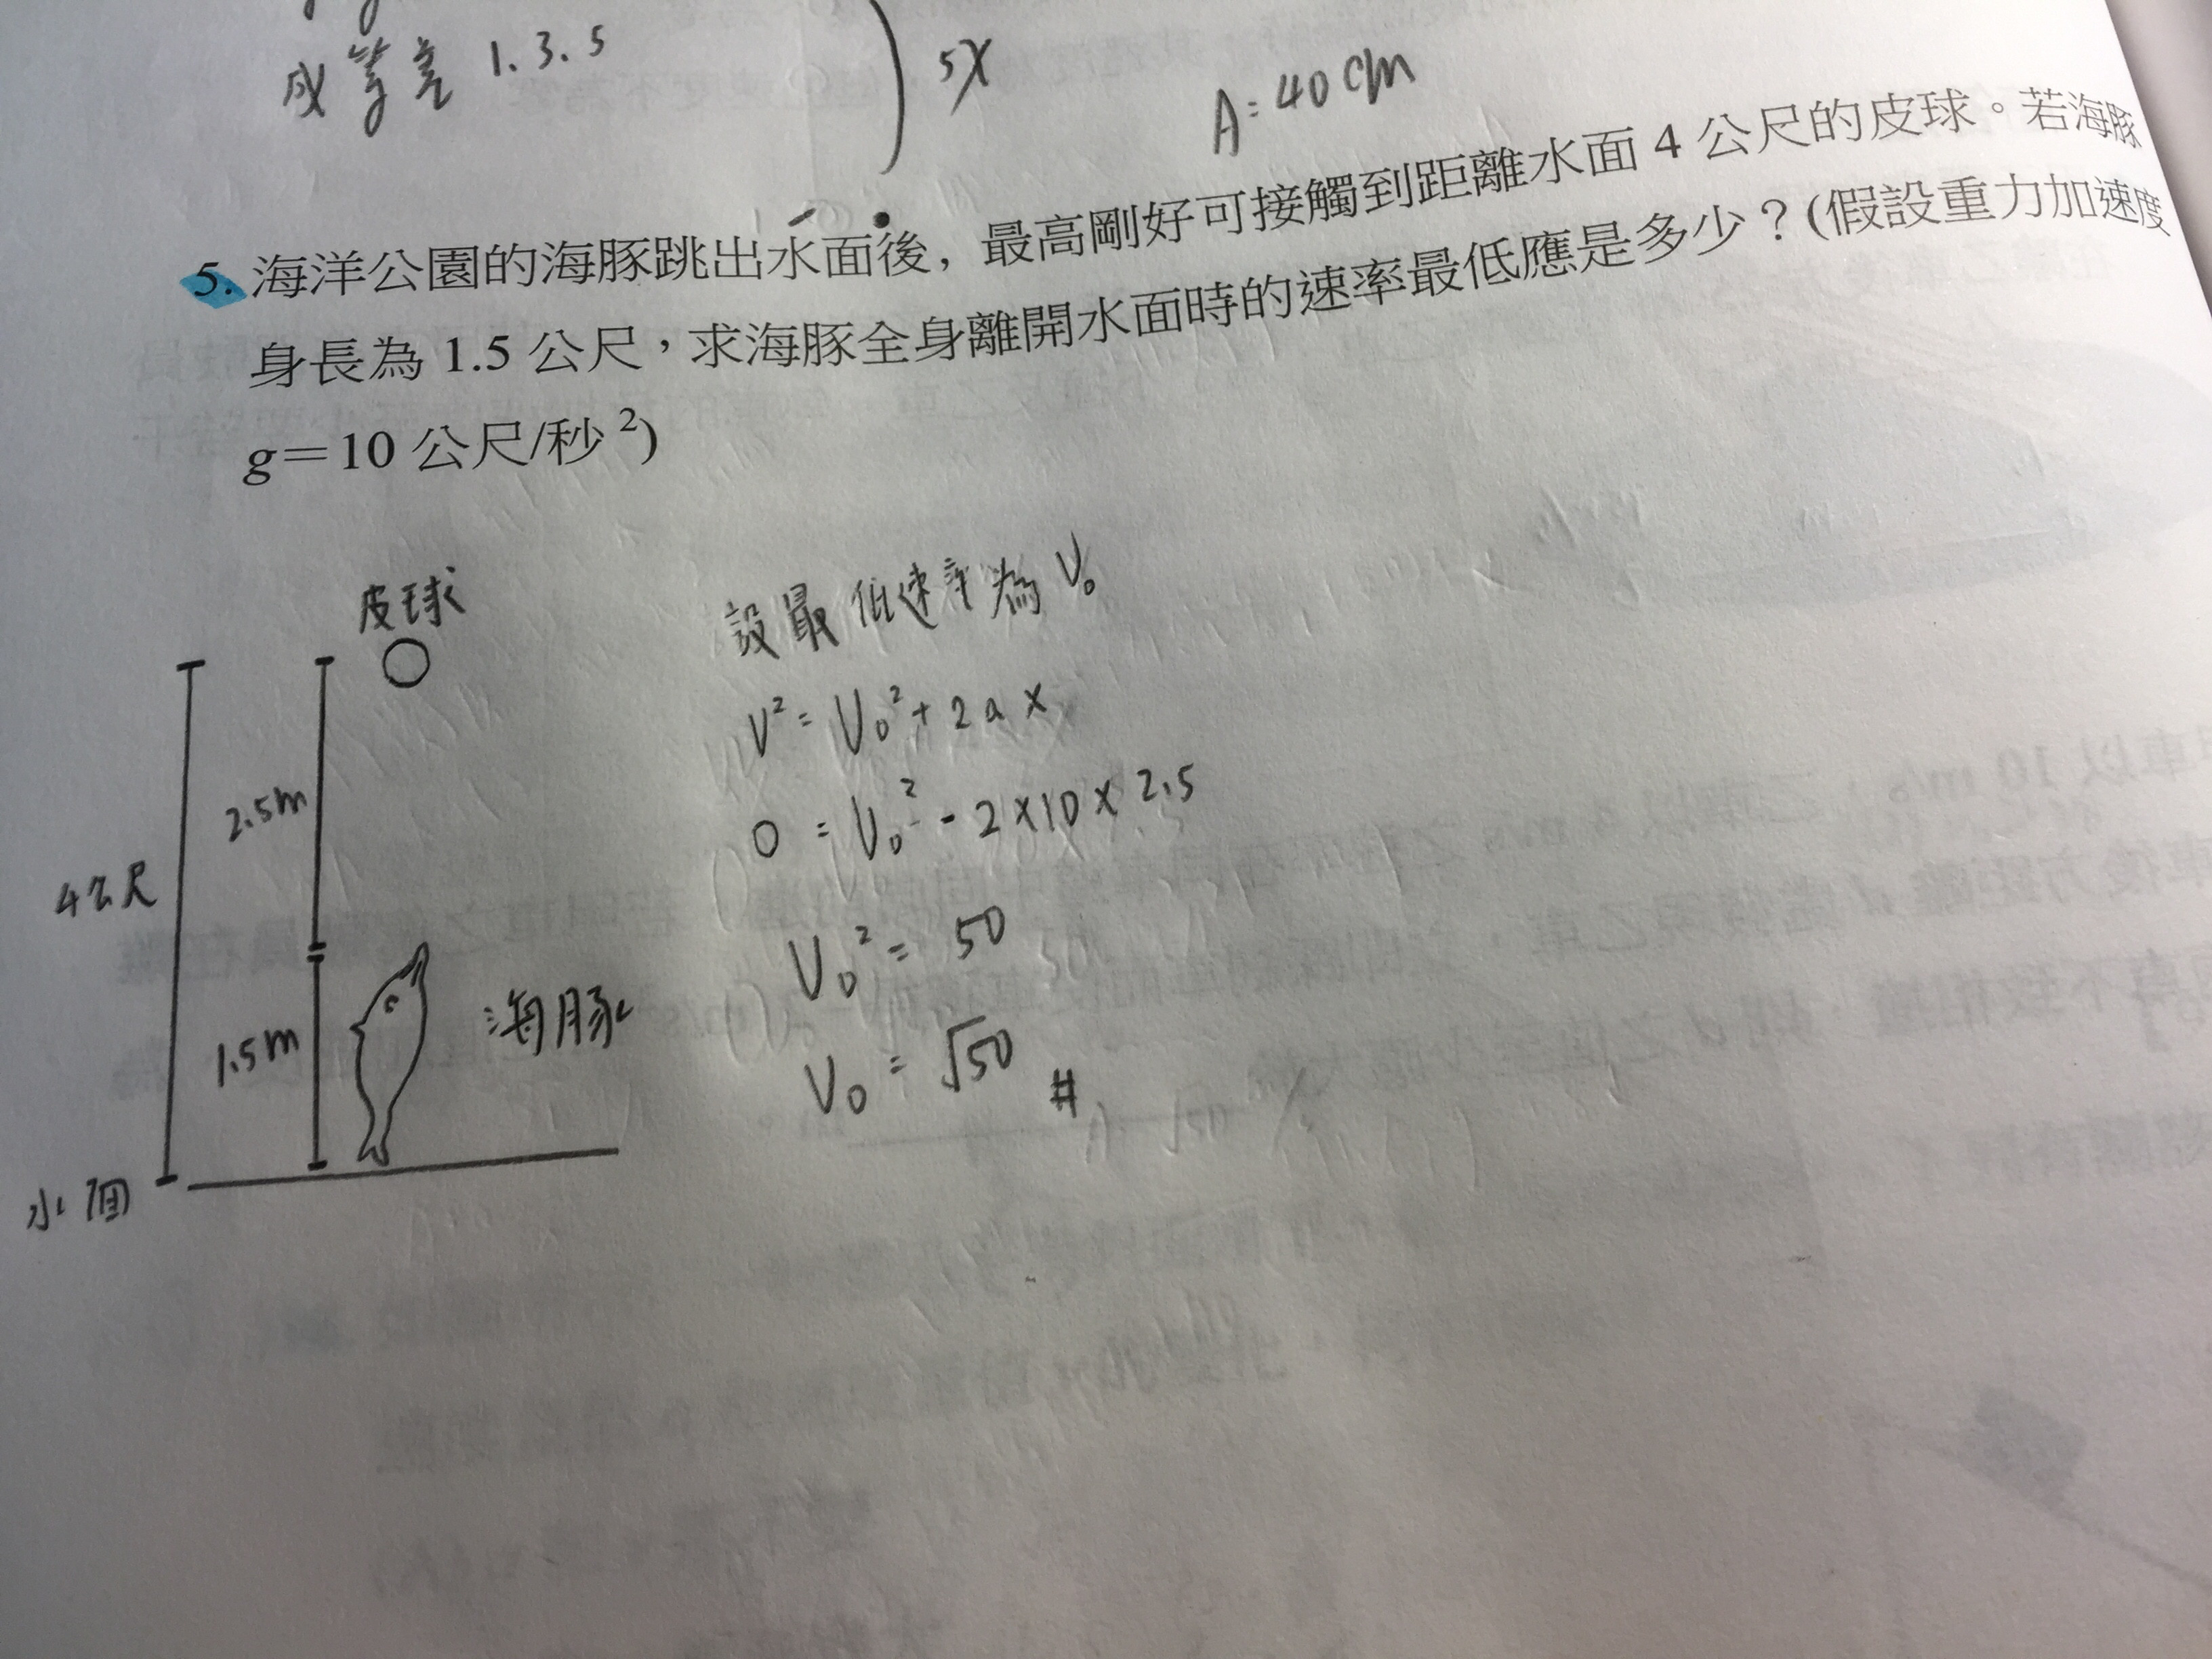 成等差 1.3.5
5X
A=40cm
5. 海洋公園的海豚跳出水面後, 最高剛好可接觸到距離水面 4 公尺的皮球。若海豚
身長為 1.5 公尺，求海豚全身離開水面時的速率最低應是多少？(假設重力加速度
g=10 公尺/秒²)
皮球
4公尺
2.5m
1.5m
海豚
水面
設最低速率為 V₀
V² = V₀² + 2 a x
0 = V₀² - 2 x 10 x 2.5
V₀² = 50
V₀ = √50 #